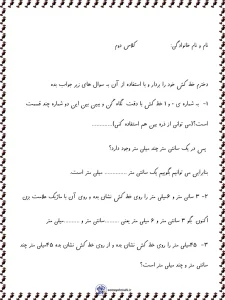 نام و نام خانوادگی: کلاس دوم
دخترم خط کش خود را بردار و با استفاده از آن به سوال های زیر جواب بده
۱- به شماره ی ۰ و ۱ خط کش با دقت نگاه کن و ببین بین این دو شماره چند قسمت
است؟(می توانی از ذره بین هم استفاده کنی)............
پس در یک سانتی متر چند میلی متر وجود دارد؟
بنابراین می توانیم بگوییم یک سانتی متر ............ میلی متر است.
۲- ۳ سانتی متر و ۶میلی متر را روی خط کش نشان بده و روی آن با ماژیک علامت بزن
اکنون بگو ۳ سانتی متر و ۶ میلی متر یعنی .........سانتی متر و ...........میلی متر
۳- ۴۵میلی متر را روی خط کش نشان بده و از روی خط کش نشان بده ۴۵میلی متر چند
سانتی متر و چند میلی متر است؟